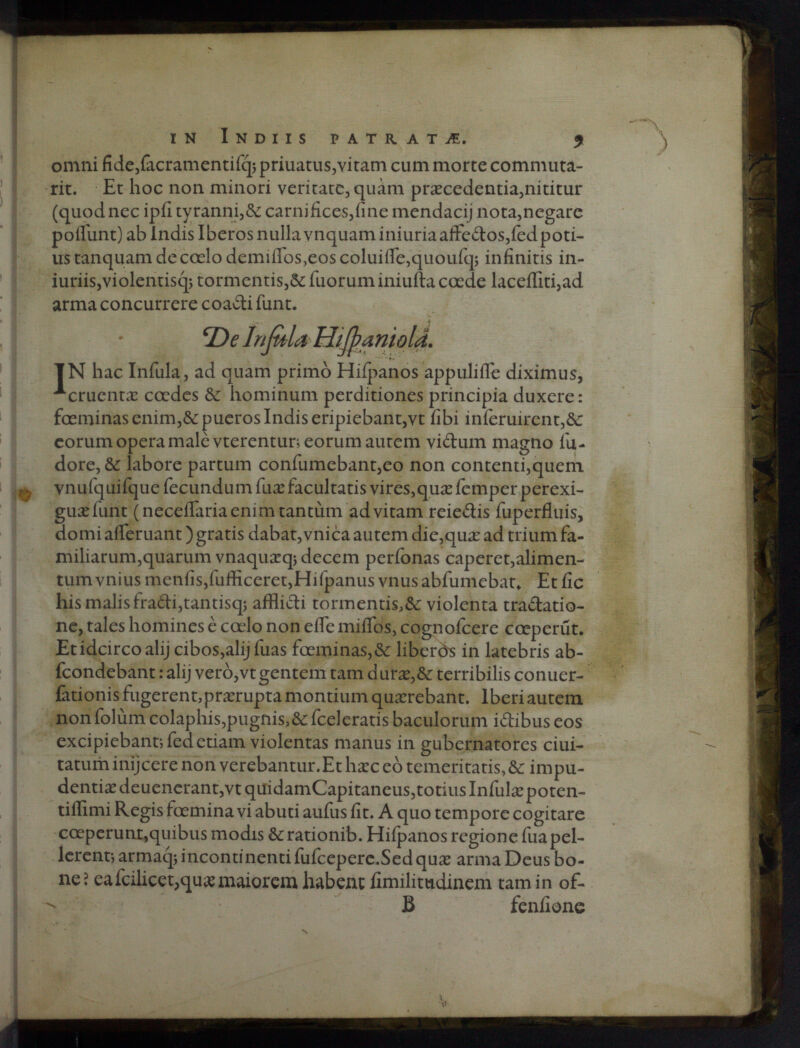 IN INDIIS PATRATÆ. 9
omni fide,ſacramentiſq; priuatus,vitam cum morte commuta-
rit. Et hoc non minori veritate, quàm præcedentia,nititur
(quod nec ipſi tyranni,& carnifices,ſine mendacij nota,negare
poſſunt) ab Indis Iberos nulla vnquam iniuria affectos,ſed poti-
us tanquam de cœlo demiſſos,eos coluiſſe,quouſq; infinitis in-
iuriis,violentisq; tormentis,& ſuorum iniuſta cœde laceſſiti,ad
arma concurrere coacti ſunt.
De Inſula Hiſpaniola.
IN hac Inſula, ad quam primò Hiſpanos appuliſſe diximus,
cruentæ cœdes & hominum perditiones principia duxere:
fœminas enim,& pueros Indis eripiebant,vt ſibi inſeruirent,&
eorum opera malè vterentur; eorum autem victum magno ſu-
dore, & labore partum conſumebant,eo non contenti,quem
vnuſquiſque ſecundum ſuæ facultatis vires,quæ ſemper perexi-
guæ ſunt (neceſſaria enim tantùm ad vitam reiectis ſuperfluis,
domi aſſeruant) gratis dabat,vnica autem die,quæ ad trium fa-
miliarum,quarum vnaquæq; decem perſonas caperet,alimen-
tum vnius menſis,ſufficeret,Hiſpanus vnus abſumebat. Et ſic
his malis fracti,tantisq; afflicti tormentis,& violenta tractatio-
ne, tales homines è cœlo non eſſe miſſos, cognoſcere cœperūt.
Et idcirco alij cibos,alij ſuas fœminas,& liberòs in latebris ab-
ſcondebant: alij verò,vt gentem tam duræ,& terribilis conuer-
ſationis fugerent,prærupta montium quærebant. Iberi autem
non ſolùm colaphis,pugnis,& ſceleratis baculorum ictibus eos
excipiebant; ſed etiam violentas manus in gubernatores ciui-
tatum inijcere non verebantur.Et hæc eò temeritatis, & impu-
dentiæ deuenerant,vt quidamCapitaneus,totius Inſulæ poten-
tiſſimi Regis fœmina vi abuti auſus ſit. A quo tempore cogitare
cœperunt,quibus modis & rationib. Hiſpanos regione ſua pel-
lerent; armaq; incontinenti ſuſcepere.Sed quæ arma Deus bo-
ne? ea ſcilicet,quæ maiorem habent ſimilitudinem tam in of-
B fenſione